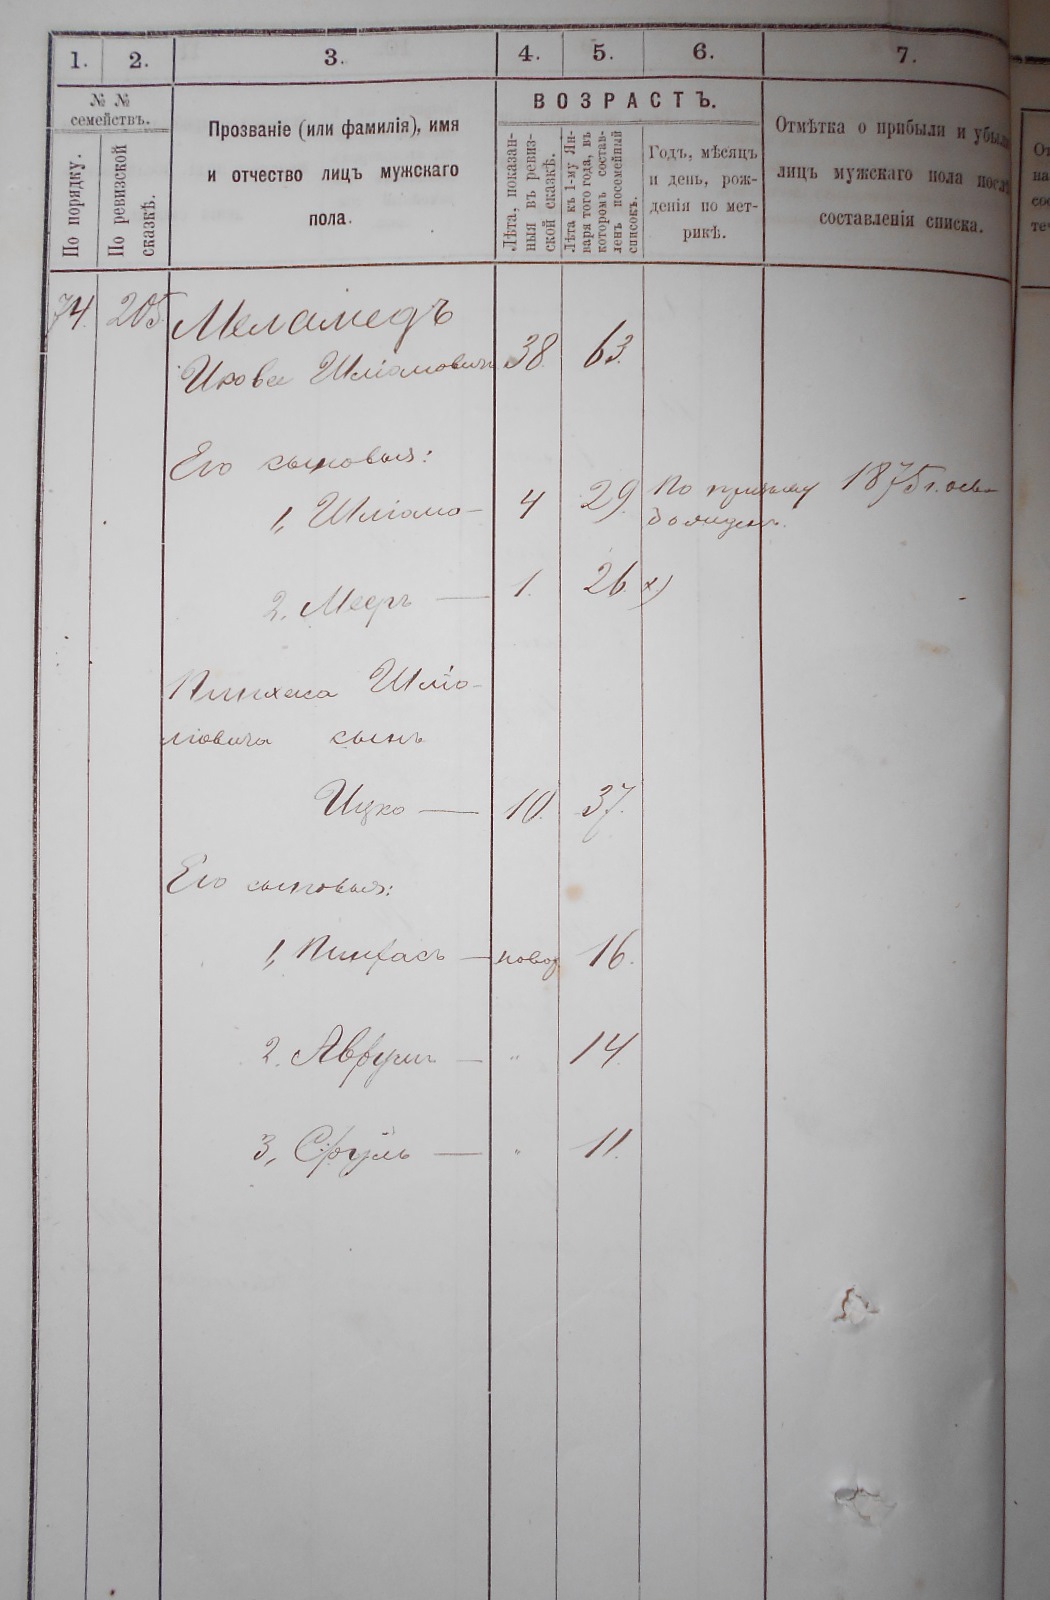 1. 2. 3. 4. 5. 6. 7.
№ №
семействъ.
По порядку.
По ревизской
сказкѣ.
Прозваніе (или фамилія), имя
и отчество лицъ мужскаго
пола.
ВОЗРАСТЪ.
Лѣта, показан-
ныя въ ревиз-
ской сказкѣ.
Лѣта къ 1-му Ян-
варя того года, въ
которомъ состав-
ленъ посемейный
списокъ.
Годъ, мѣсяцъ
и день, рож-
денія по мет-
рикѣ.
Отмѣтка о прибыли и убыли
лицъ мужскаго пола послѣ
составленія списка.
74. 205. Меламедъ
Шліомовичъ 38. 63.
Его сыновья:
1, Шліома — 4 29. По призыву 1875 г.
2. Меръ — 1. 26. х)
Пинхаса Шліо-
мовича сынъ
Ицко — 10. 37.
Его сыновья:
1, Пинхасъ — новор 16.
2. Аврумъ — " 14.
3, Сруль — " 11.